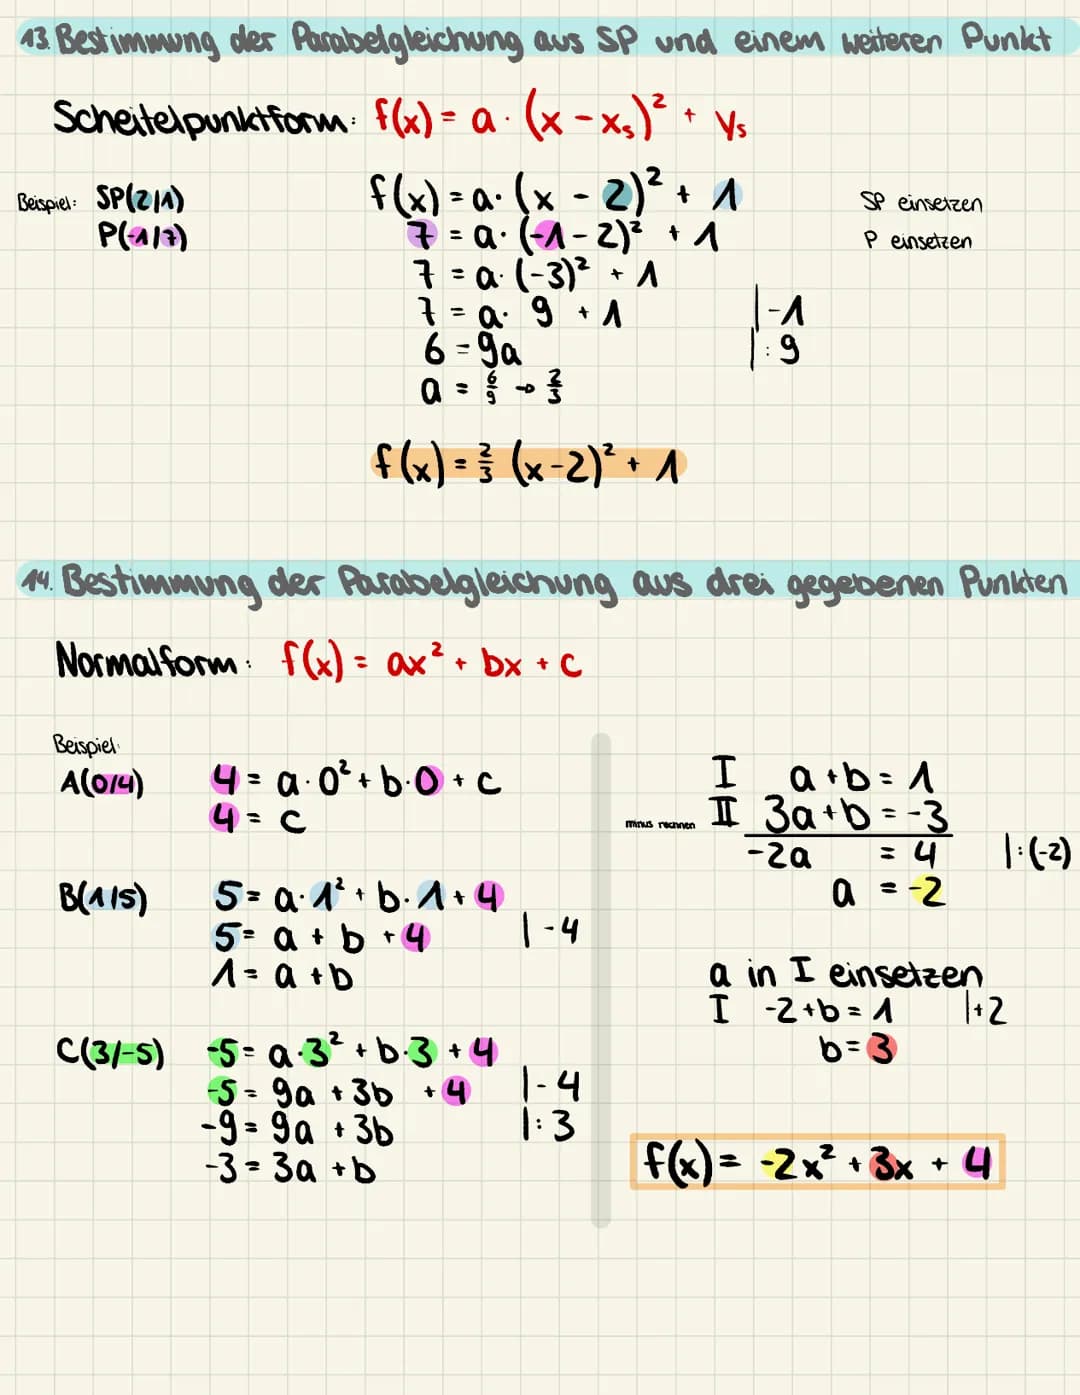 13. Bestimmung der Parabelgleichung aus SP und einem weiteren Punkt
Scheitelpunktform: f(x) = a · (x - xₛ)² + yₛ
Beispiel: SP(2|1) f(x) = a · (x - 2)² + 1 SP einsetzen
P(-1|7) 7 = a · (-1 - 2)² + 1 P einsetzen
7 = a · (-3)² + 1
7 = a · 9 + 1 |-1
6 = 9a |:9
a = 6/9 → 2/3
f(x) = 2/3 (x-2)² + 1
14. Bestimmung der Parabelgleichung aus drei gegebenen Punkten
Normalform: f(x) = ax² + bx + c
Beispiel:
A(0/4) 4 = a · 0² + b · 0 + c
4 = c
B(1/5) 5 = a · 1² + b · 1 + 4
5 = a + b + 4 |-4
1 = a + b
C(3/-5) -5 = a · 3² + b · 3 + 4
-5 = 9a + 3b + 4 |-4
-9 = 9a + 3b |:3
-3 = 3a + b
I a + b = 1
minus rechnen II 3a + b = -3
-2a = 4 |:(-2)
a = -2
a in I einsetzen
I -2 + b = 1 |+2
b = 3
f(x) = -2x² + 3x + 4